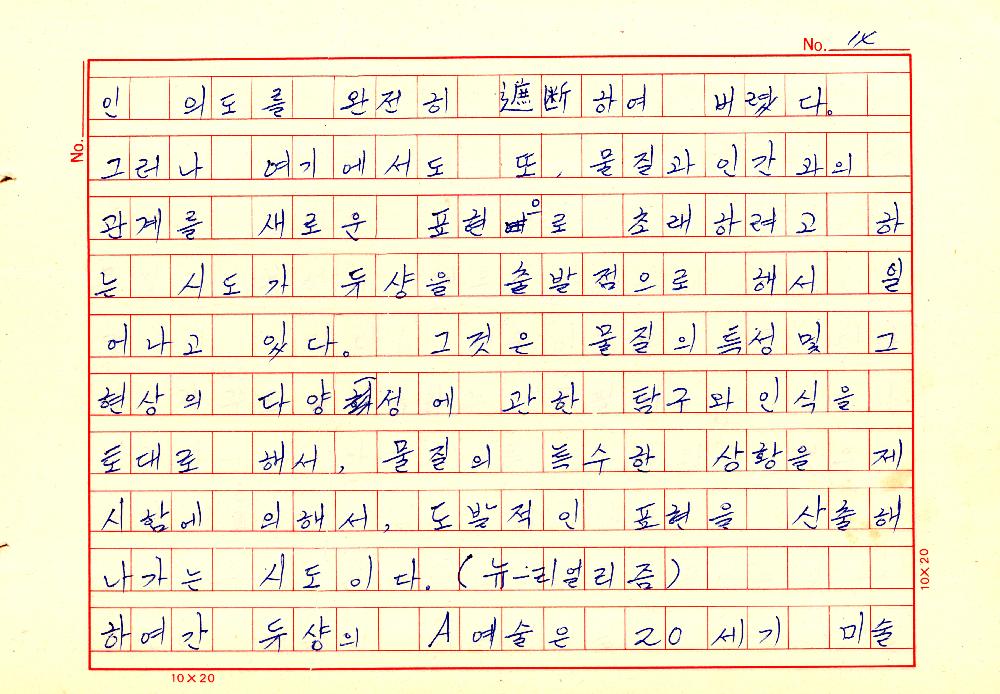 No. 14
No.
인 의도를 완전히 遮断하여 버렸다.
그러나 여기에서도 또, 물질과 인간과의
관계를 새로운 표현으로 초래하려고 하
는 시도가 듀샹을 출발점으로 해서 일
어나고 있다. 그것은 물질의 특성 및 그
현상의 다양성에 관한 탐구와 인식을
토대로 해서, 물질의 특수한 상황을 제
시함에 의해서, 도발적인 표현을 산출해
나가는 시도이다. (뉴-리얼리즘)
하여간 듀샹의 A예술은 20세기 미술
10×20
10×20